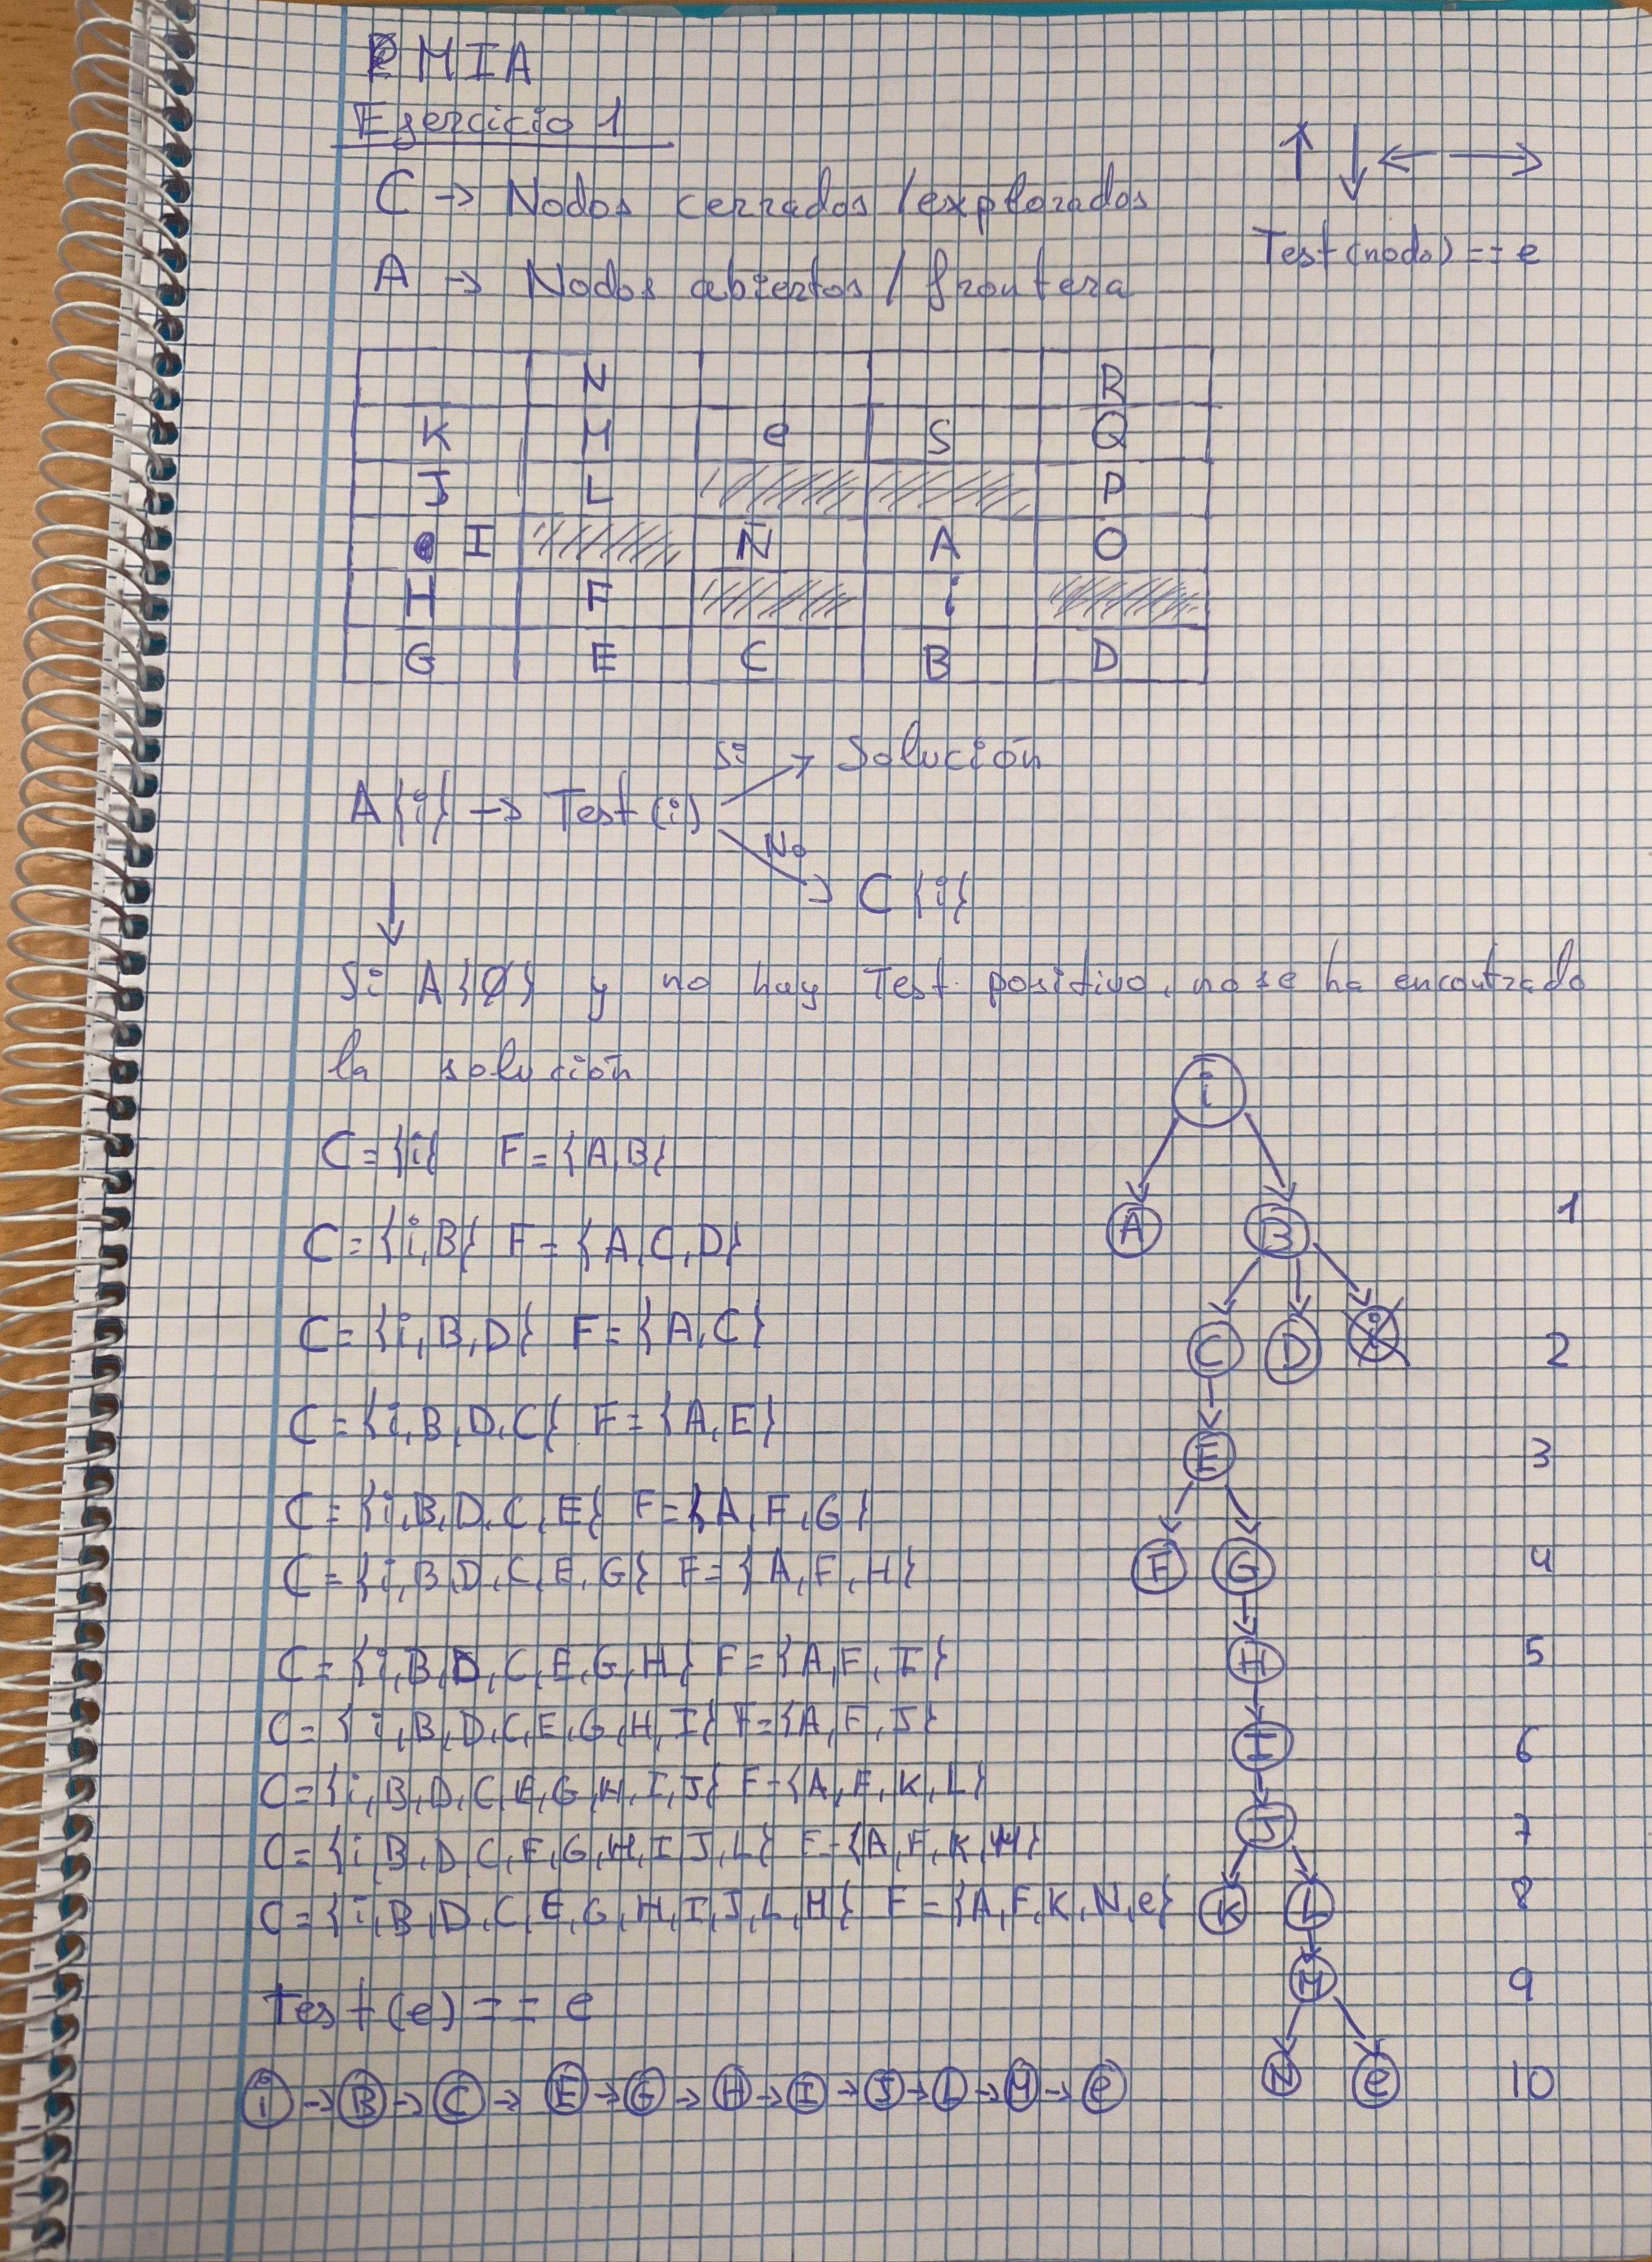 MIA
Ejercicio 1
C → Nodos cerrados / explorados
↑ ↓ ← →
Test (nodo) == e
A → Nodos abiertos / frontera
N R
K M e S Q
J L P
I Ñ A O
H F i
G E C B D
Si → Solución
A{i} → Test (i)
No → C{i}
↓
Si A{Ø} y no hay Test positivo, no se ha encontrado
la solución
C = {i} F = {A,B}
C = {i,B} F = {A,C,D}
C = {i,B,D} F = {A,C}
C = {i,B,D,C} F = {A,E}
C = {i,B,D,C,E} F = {A,F,G}
C = {i,B,D,C,E,G} F = {A,F,H}
C = {i,B,D,C,E,G,H} F = {A,F,I}
C = {i,B,D,C,E,G,H,I} F = {A,F,J}
C = {i,B,D,C,E,G,H,I,J} F = {A,F,K,L}
C = {i,B,D,C,E,G,H,I,J,L} F = {A,F,K,M}
C = {i,B,D,C,E,G,H,I,J,L,M} F = {A,F,K,N,e}
Test (e) == e
i → B → C → E → G → H → I → J → L → M → e
i
A B 1
C D i 2
E 3
F G 4
H 5
I 6
J 7
K L 8
M 9
N e 10